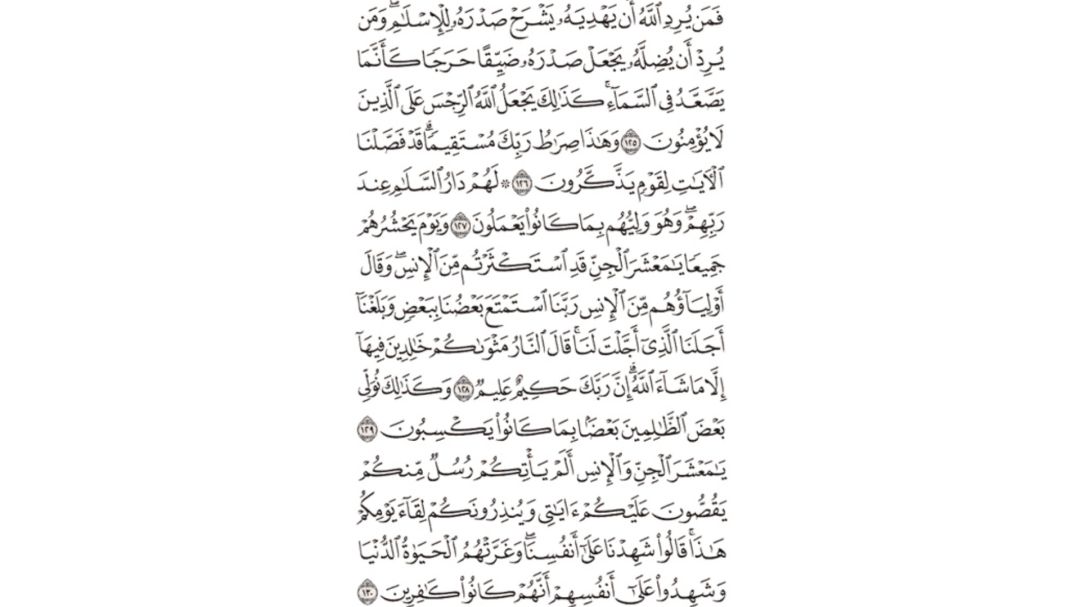 فَمَن يُرِدِ ٱللَّهُ أَن يَهْدِيَهُۥ يَشْرَحْ صَدْرَهُۥ لِلْإِسْلَٰمِ ۖ وَمَن
يُرِدْ أَن يُضِلَّهُۥ يَجْعَلْ صَدْرَهُۥ ضَيِّقًا حَرَجًا كَأَنَّمَا
يَصَّعَّدُ فِى ٱلسَّمَآءِ ۚ كَذَٰلِكَ يَجْعَلُ ٱللَّهُ ٱلرِّجْسَ عَلَى ٱلَّذِينَ
لَا يُؤْمِنُونَ ١٢٥ وَهَٰذَا صِرَٰطُ رَبِّكَ مُسْتَقِيمًا ۗ قَدْ فَصَّلْنَا
ٱلْءَايَٰتِ لِقَوْمٍ يَذَّكَّرُونَ ١٢٦ ۞ لَهُمْ دَارُ ٱلسَّلَٰمِ عِندَ
رَبِّهِمْ ۖ وَهُوَ وَلِيُّهُم بِمَا كَانُوا۟ يَعْمَلُونَ ١٢٧ وَيَوْمَ يَحْشُرُهُمْ
جَمِيعًا يَٰمَعْشَرَ ٱلْجِنِّ قَدِ ٱسْتَكْثَرْتُم مِّنَ ٱلْإِنسِ ۖ وَقَالَ
أَوْلِيَآؤُهُم مِّنَ ٱلْإِنسِ رَبَّنَا ٱسْتَمْتَعَ بَعْضُنَا بِبَعْضٍ وَبَلَغْنَآ
أَجَلَنَا ٱلَّذِىٓ أَجَّلْتَ لَنَا ۚ قَالَ ٱلنَّارُ مَثْوَىٰكُمْ خَٰلِدِينَ فِيهَآ
إِلَّا مَا شَآءَ ٱللَّهُ ۗ إِنَّ رَبَّكَ حَكِيمٌ عَلِيمٌ ١٢٨ وَكَذَٰلِكَ نُوَلِّى
بَعْضَ ٱلظَّٰلِمِينَ بَعْضًۢا بِمَا كَانُوا۟ يَكْسِبُونَ ١٢٩
يَٰمَعْشَرَ ٱلْجِنِّ وَٱلْإِنسِ أَلَمْ يَأْتِكُمْ رُسُلٌ مِّنكُمْ
يَقُصُّونَ عَلَيْكُمْ ءَايَٰتِى وَيُنذِرُونَكُمْ لِقَآءَ يَوْمِكُمْ
هَٰذَا ۚ قَالُوا۟ شَهِدْنَا عَلَىٰٓ أَنفُسِنَا ۖ وَغَرَّتْهُمُ ٱلْحَيَوٰةُ ٱلدُّنْيَا
وَشَهِدُوا۟ عَلَىٰٓ أَنفُسِهِمْ أَنَّهُمْ كَانُوا۟ كَٰفِرِينَ ١٣٠